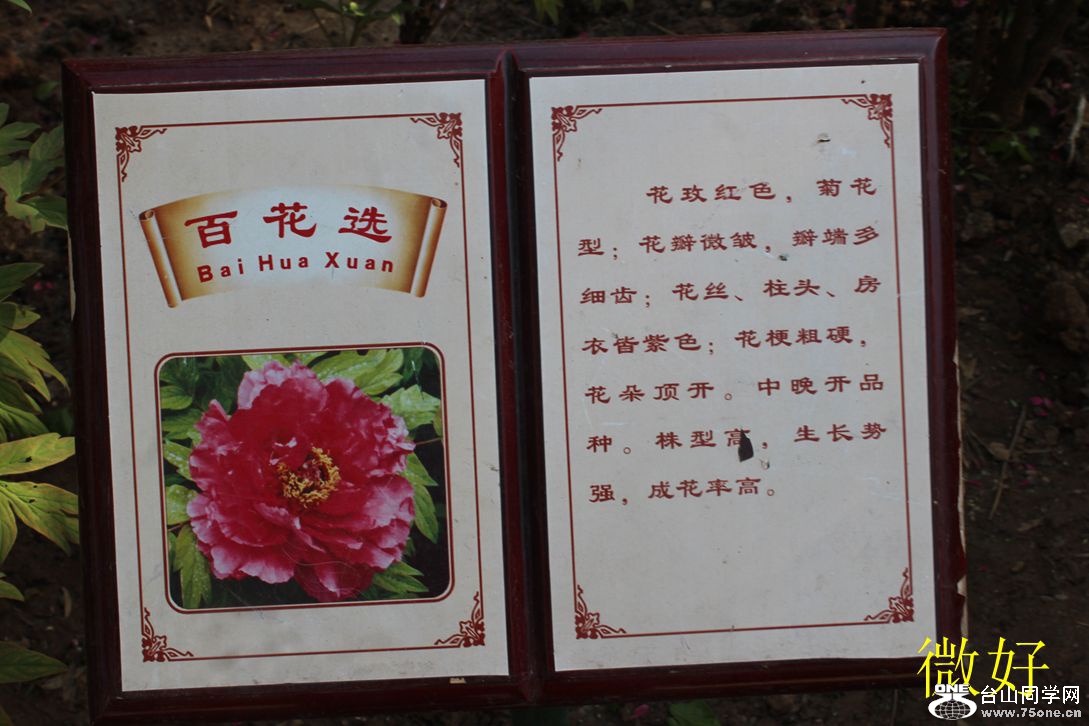 百花选
Bai Hua Xuan
花玫红色，菊花
型；花瓣微皱，瓣端多
细齿；花丝、柱头、房
衣皆紫色；花梗粗硬，
花朵顶开。中晚开品
种。株型高，生长势
强，成花率高。
微好
ONE
台山同学网
www.75one.cn